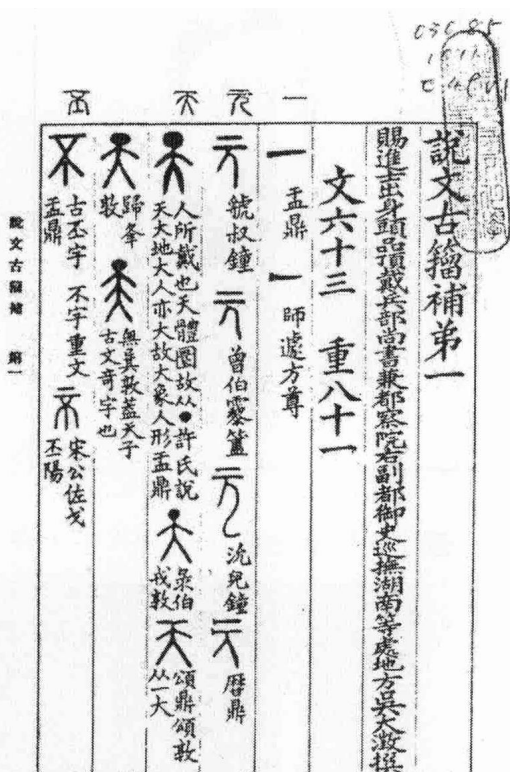 說文古籀補弟一
賜進士出身頭品頂戴兵部尚書兼都察院右副都御史巡撫湖南等處地方吳大澂撰
文六十三 重八十一
一 盂鼎 師遽方尊
虢叔鐘 曾伯霥簠 沇兒鐘 曆鼎
人所戴也天體圜故从●許氏說
天大地大人亦大故大象人形盂鼎
彔伯
戎敦
頌鼎頌敦
从一大
歸夆
敦
無㠱敦蓋天子
古文奇字也
古丕字 不字重文
盂鼎
宋公佐戈
丕陽
說文古籀補 第一